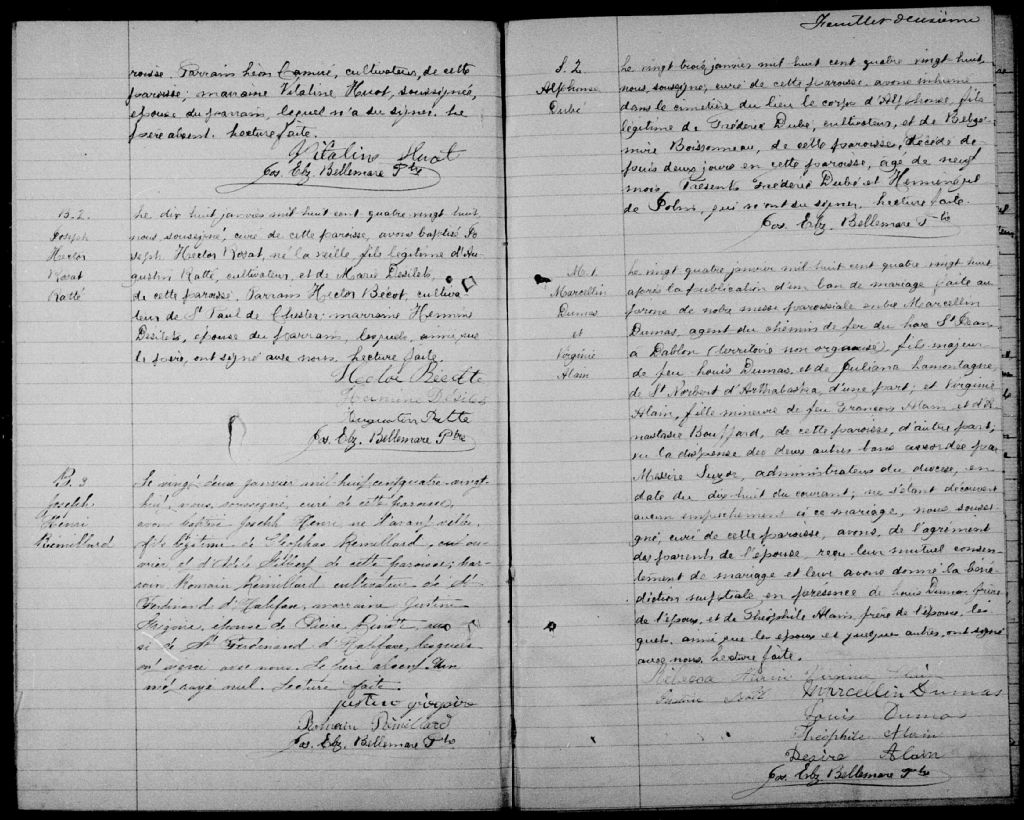 roisse. Parrain Léon Camiré, cultivateur, de cette
paroisse; marraine Vitaline Huot, soussignée,
épouse du parrain, lequel n'a su signer. Le
père absent. Lecture faite.
Vitaline Huot
Jos. Elz. Bellemare Ptre
B. 2.
Joseph
Hector
Rosat
Ratté
Le dix huit janvier mil huit cent quatre vingt huit,
nous, soussigné, curé de cette paroisse, avons baptisé Jo
seph Hector Rosat, né la veille, fils légitime d'Au
gustin Ratté, cultivateur, et de Marie Desilets,
de cette paroisse, Parrain Hector Bécot, cultiva
teur de St Paul de Chester; marraine Hermine
Desilets, épouse du parrain, lesquels, ainsi que
le père, ont signé avec nous. Lecture faite.
Hermine Désilets
Augustin Ratte
Jos. Elz. Bellemare Ptre
B. 3
Joseph
Henri
Rémillard
Le vingt deux janvier mil huit cent quatre-vingt
huit, nous, soussigné, curé de cette paroisse,
avons baptisé Joseph Henri, né l'avant veille,
fils légitime de Cléophas Rémillard,
vrier, et d'Adèle de cette paroisse; par
rain Romain Rémillard cultivateur de St
Ferdinand d'Halifax, marraine Justine
Grégoire, épouse de Pierre
si de St Ferdinand d'Halifax, lesquels
ont signé avec nous. Le père absent. Un
mot rayé nul. Lecture faite.
justine grégoire
Romain Rémillard
Jos. Elz. Bellemare Ptre
Feuillet deuxième
S. 2
Alphonse
Dubé
Le vingt trois janvier mil huit cent quatre vingt huit
nous, soussigné, curé de cette paroisse, avons inhumé
dans le cimetière du lieu le corps d'Alphonse, fils
légitime de Frédéric Dubé, cultivateur, et de Belzé
mire Boissonneau, de cette paroisse, décédé de
puis deux jours en cette paroisse, âgé de neuf
mois. Présents Frédéric Dubé et Herménégil
de qui n'ont su signer. Lecture faite.
Jos. Elz. Bellemare Ptre
M. 1
Marcellin
Dumas
et
Virginie
Alain
Le vingt quatre janvier mil huit cent quatre vingt huit
après la publication d'un ban de mariage faite au
prône de notre messe paroissiale entre Marcellin
Dumas, agent du chemin de fer du lac St Jean
à Dablon (territoire non organisé), fils majeur
de feu Louis Dumas, et de Juliana Lamontagne,
de St Norbert d'Arthabaska, d'une part; et Virginie
Alain, fille mineure de feu François Alain et d'A
nastasie Bouffard, de cette paroisse, d'autre part;
vu la dispense des deux autres bans accordée par
Messire Suzor, administrateur du diocèse, en
date du dix huit du courant; ne s'étant découvert
aucun empêchement à ce mariage, nous soussi
gné, curé de cette paroisse, avons, de l'agrément
des parents de l'épouse reçu leur mutuel consen
tement de mariage et leur avons donné la béné
diction nuptiale, en présence de Louis Dumas frère
de l'époux, et de Théophile Alain, frère de l'épouse, les
quels, ainsi que les époux et quelques autres, ont signé
avec nous. Lecture faite.
Virginie Alain
Marcellin Dumas
Louis Dumas
Théophile Alain
Desiré Alain
Jos. Elz. Bellemare Ptre